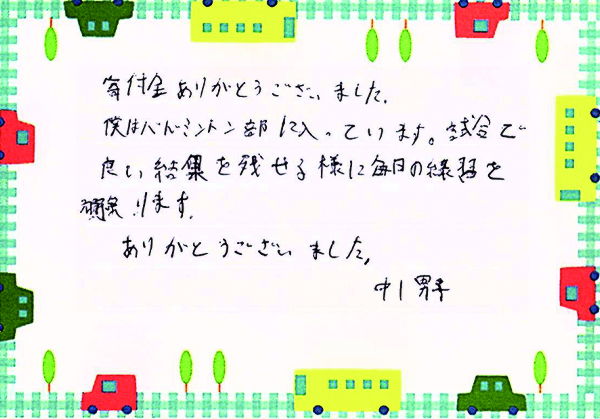 寄付金ありがとうございました。
僕はバドミントン部に入っています。試合で
良い結果を残せる様に毎日の練習を
頑張ります。
ありがとうございました。
中1 男子